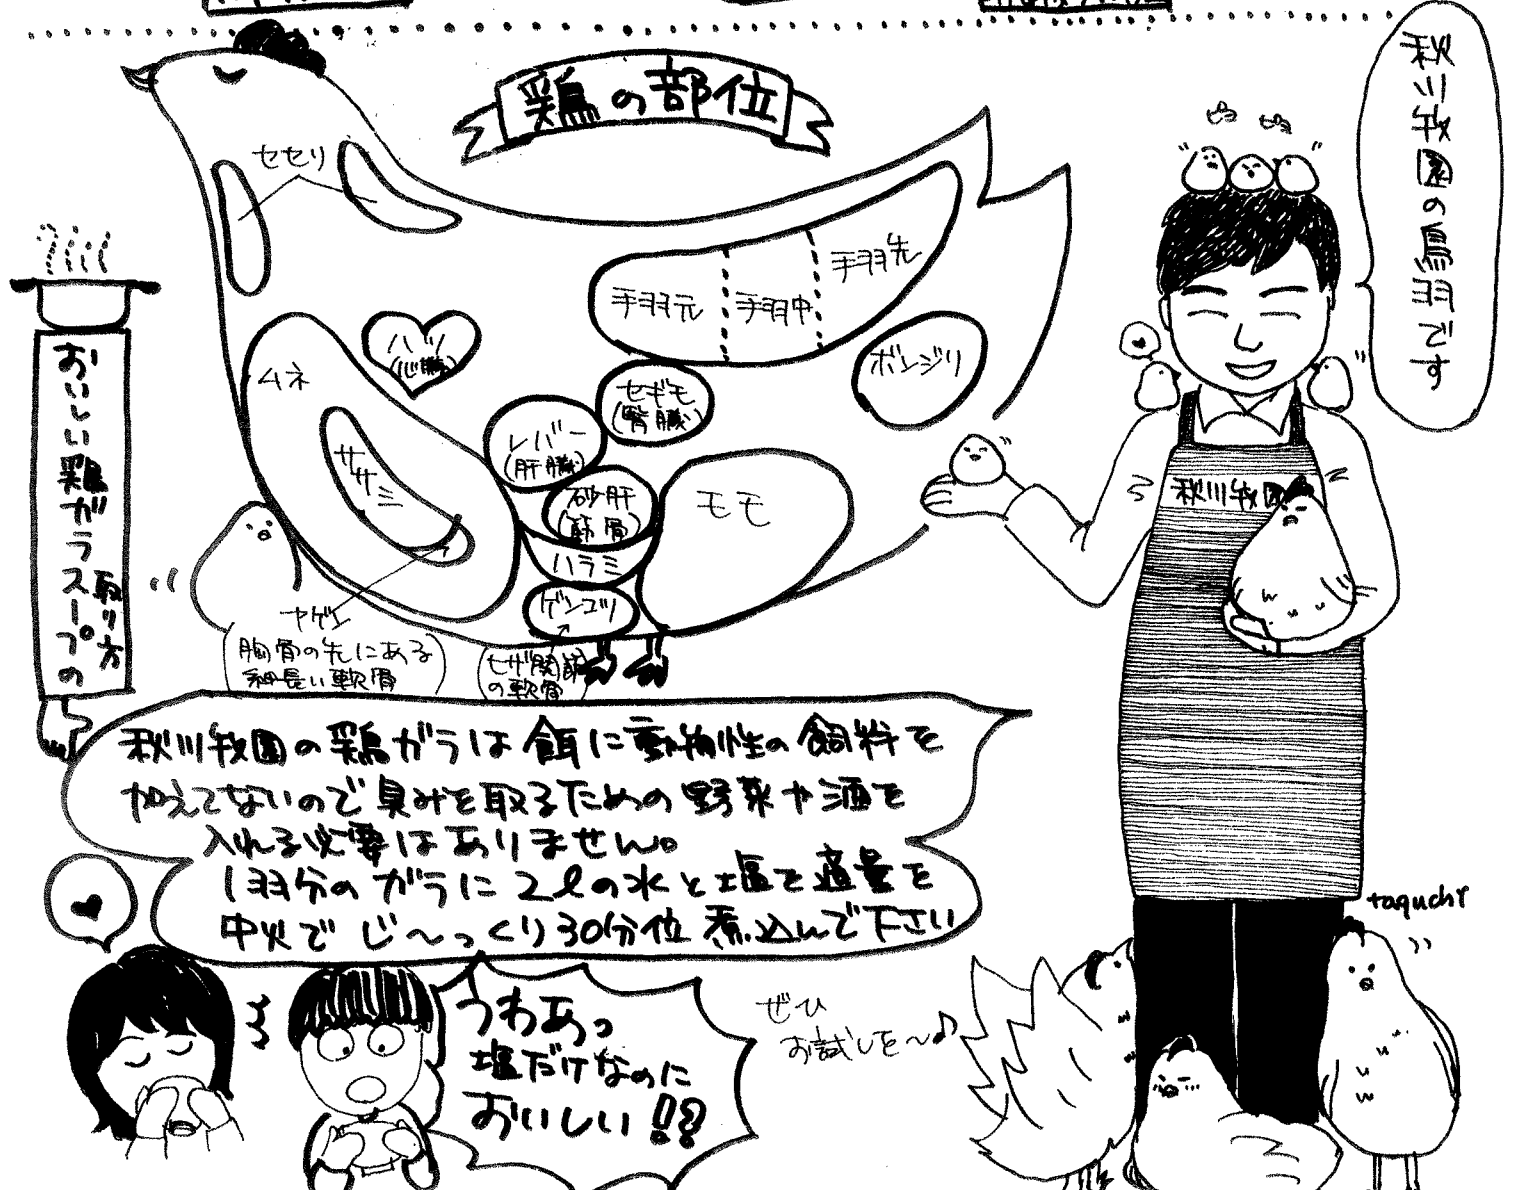 鶏の部位
秋川牧園の鳥羽です
ピヨ ピヨ
セセリ
手羽元
手羽中
手羽先
ハツ
(心臓)
ムネ
ササミ
レバー
(肝臓)
セギモ
(腎臓)
ボンジリ
砂肝
(筋胃)
ハラミ
モモ
ゲンコツ
(ヒザ関節
の軟骨)
ヤゲン
(胸骨の先にある
細長い軟骨)
おいしい鶏ガラスープの
取り方
秋川牧園
秋川牧園の鶏ガラは餌に動物性の飼料を
加えてないので臭みを取るための野菜や酒を
入れる必要はありません。
1羽分のガラに2ℓの水と塩を適量を
中火でじ〜っくり30分位煮込んで下さい
うわあっ
塩だけなのに
おいしい!?
ぜひ
お試しを〜♪
taguchi